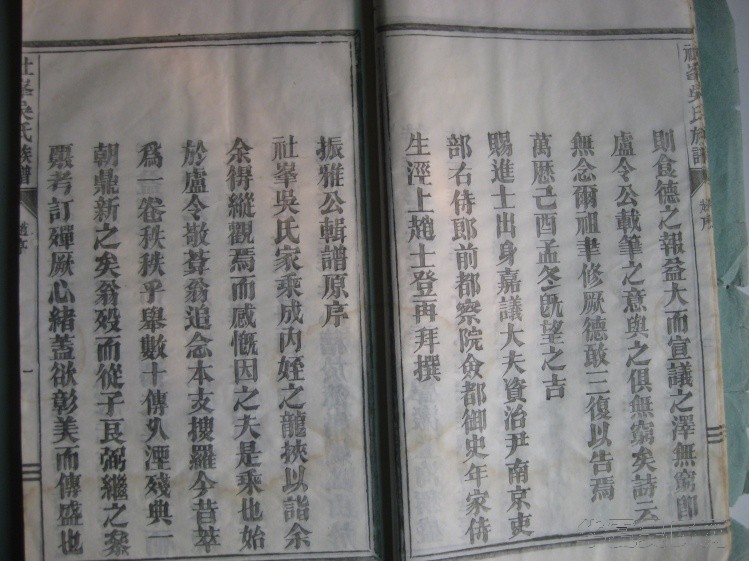 祉峯吳氏族譜
趙序
則食德之報益大而宣議之澤無窮卽
盧令公載筆之意與之俱無窮矣詩云
無念爾祖聿修厥德敢三復以告焉
萬歷己酉孟冬旣望之吉
賜進士出身嘉議大夫資治尹南京吏
部右侍郎前都察院僉都御史年家侍
生涇上趙士登再拜撰
振雅公輯譜原序
社峯吳氏家乘成內姪之龍挾以詣余
余得縱觀焉而感慨因之夫是乘也始
於盧令敬葊翁追念本支搜羅今昔萃
為一卷秩秩乎舉數十傳久湮殘典一
朝鼎新之矣翁歿而從子良弼繼之叅
槩考訂殫厥心緒蓋欲彰美而傳盛也
社峯吳氏族譜
一